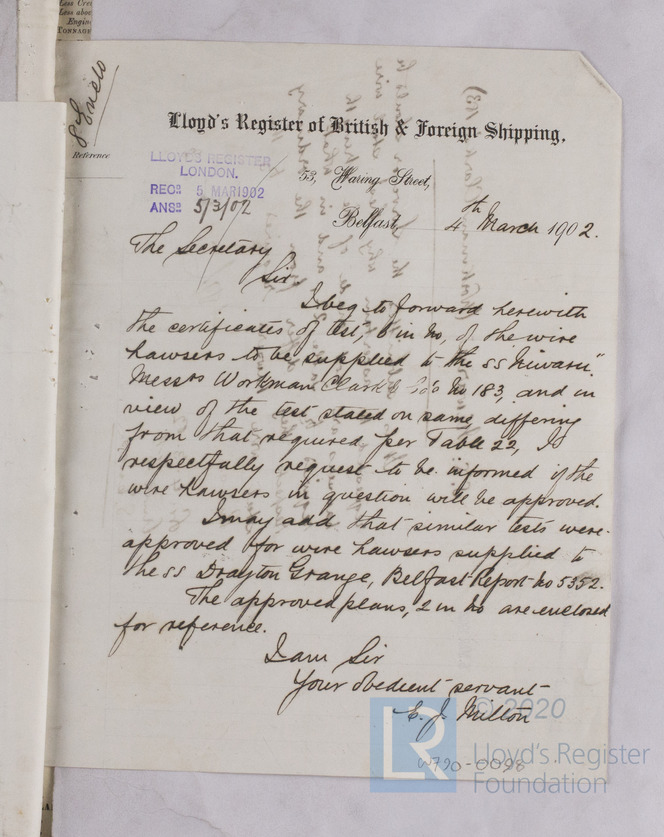 Less
Less abov
Engin
TONNAG
Reference
Lloyd's Register of British & Foreign Shipping,
LLOYD'S REGISTER
LONDON.
RECD 5 MAR 1902
ANSD 5/3/02
53, Waring Street,
Belfast 4th March 1902.
The Secretary
Sir,
I beg to forward herewith
the certificates of test, 6 in no, of the wire
hawsers to be supplied to the ss "Niwaru,"
Messrs Workman Clark & Co's No 183, and in
view of the test stated on same, differing
from that required per Table 22, to
respectfully request to be informed if the
wire hawsers in question will be approved.
I may add that similar tests were
approved for wire hawsers supplied to
the ss Drayton Grange, Belfast Report no 5352.
The approved plans, 2 in no are enclosed
for reference.
I am Sir
Your obedient servant
E. J. Milton
© 2020
LR
Lloyd's Register
Foundation
W790-0098